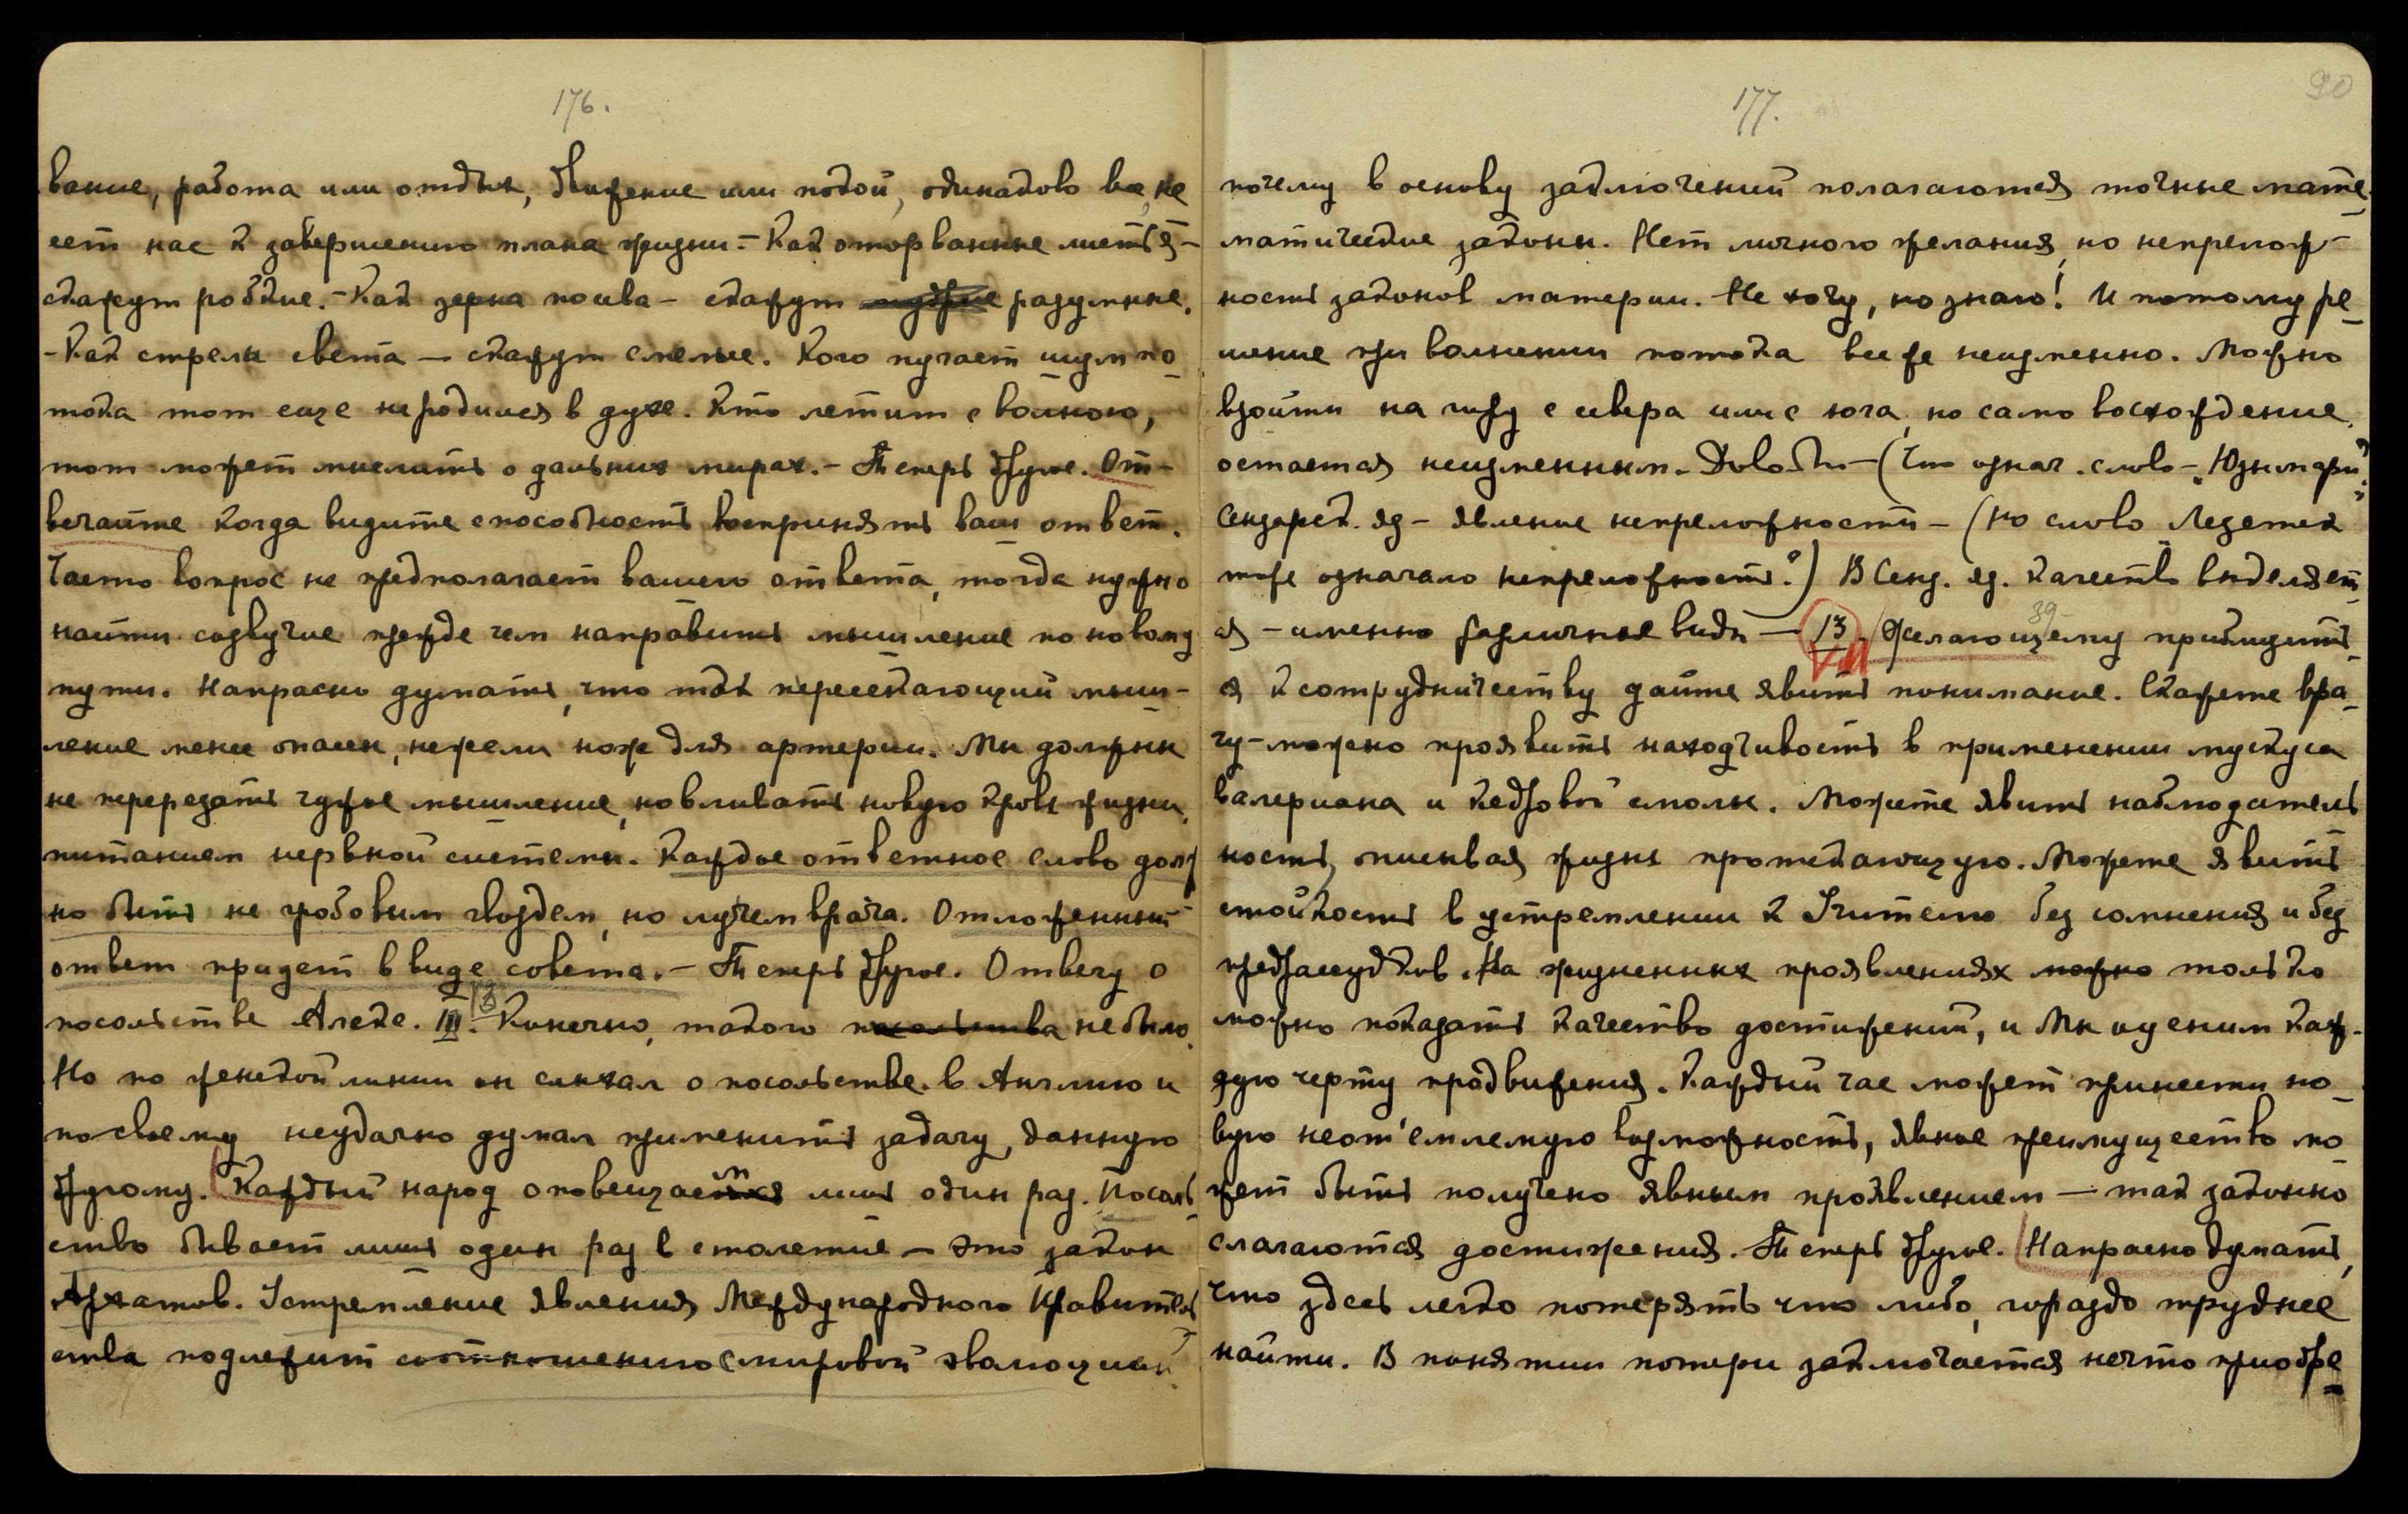 176.
вание, работа или отдых, движение или покой, одинаково все не
сет нас к завершению плана жизни. - Как оторванные листья -
скажут робкие. - Как зерна посева - скажут разумные.
- Как стрелы света — скажут смелые. Кого пугает шум по
тока тот еще не родился в духе. Кто летит с волною,
тот может мыслить о дальних мирах. - Теперь другое. От-
вечайте когда видите способность воспринять ваш ответ.
Часто вопрос не предполагает вашего ответа, тогда нужно
найти созвучие прежде чем направить мышление по новому
пути. Напрасно думать, что ток пересекающий мыш-
ление менее опасен, нежели нож для артерии. Мы должны
не перерезать чужое мышление, но вливать новую кровь жизни,
питанием нервной системы. Каждое ответное слово долж
но быть не гробовым гвоздем, но лучем врача. Отложенный
ответ придет в виде совета. - Теперь другое. Отвечу о
посольстве Алекс. III. 13 Конечно, такого посольства не было.
Но по женской линии он слыхал о посольстве в Англию и
по своему неудачно думал применить задачу, данную
другому. Каждый народ оповещаем лишь один раз. Посоль
ство бывает лишь один раз в столетие — это закон
Архатов. Устремление явления Международного Правитель
ства подлежит соотношению с мировой эволюцией.
177.
90
почему в основу заключений полагаются точные мате
матические законы. Нет личного желания, но непрелож-
ность законов материи. Не хочу, но знаю! И потому ре
шение при волнении потока все же неизменно. Можно
взойти на гору с севера или с юга, но само восхождение
остается неизменным. - (Что означ. слово -
Сензарск. яз - явление непреложности - (но слово
тоже означало непреложность?) В Сенз. яз. качество выделяет
ся - именно различные виды — 13 VIII 39 Желающему приблизить
ся к сотрудничеству дайте явить понимание. Скажете вра
чу - можно проявить находчивость в применении мускуса
валериана и кедровой смолы. Можете явить наблюдатель
ность, описывая жизнь протекающую. Можете явить
стойкость в устремлении к Учителю без сомнения и без
предрассудков. На жизненных проявлениях можно только
можно показать качество достижений, и Мы оценим каж-
дую черту продвижения. Каждый час может принести но
вую неот'емлемую возможность, явное преимущество мо
жет быть получено явным проявлением — так законно
слагаются достижения. Теперь другое. Напрасно думать,
что здесь легко потерять что либо, гораздо труднее
найти. В понятии потери заключается нечто приобре